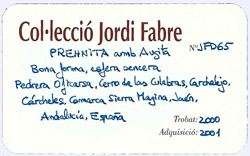 Col·lecció Jordi Fabre
PREHNITA amb Augita
Nº JFD65
Bona forma, esfera sencera
Pedrera Ofitarsa, Cerro de las Culebras, Carchelejo,
Cárcheles, Comarca Sierra Magina, Jaén,
Andalucía, España
Trobat: 2000
Adquisició: 2001